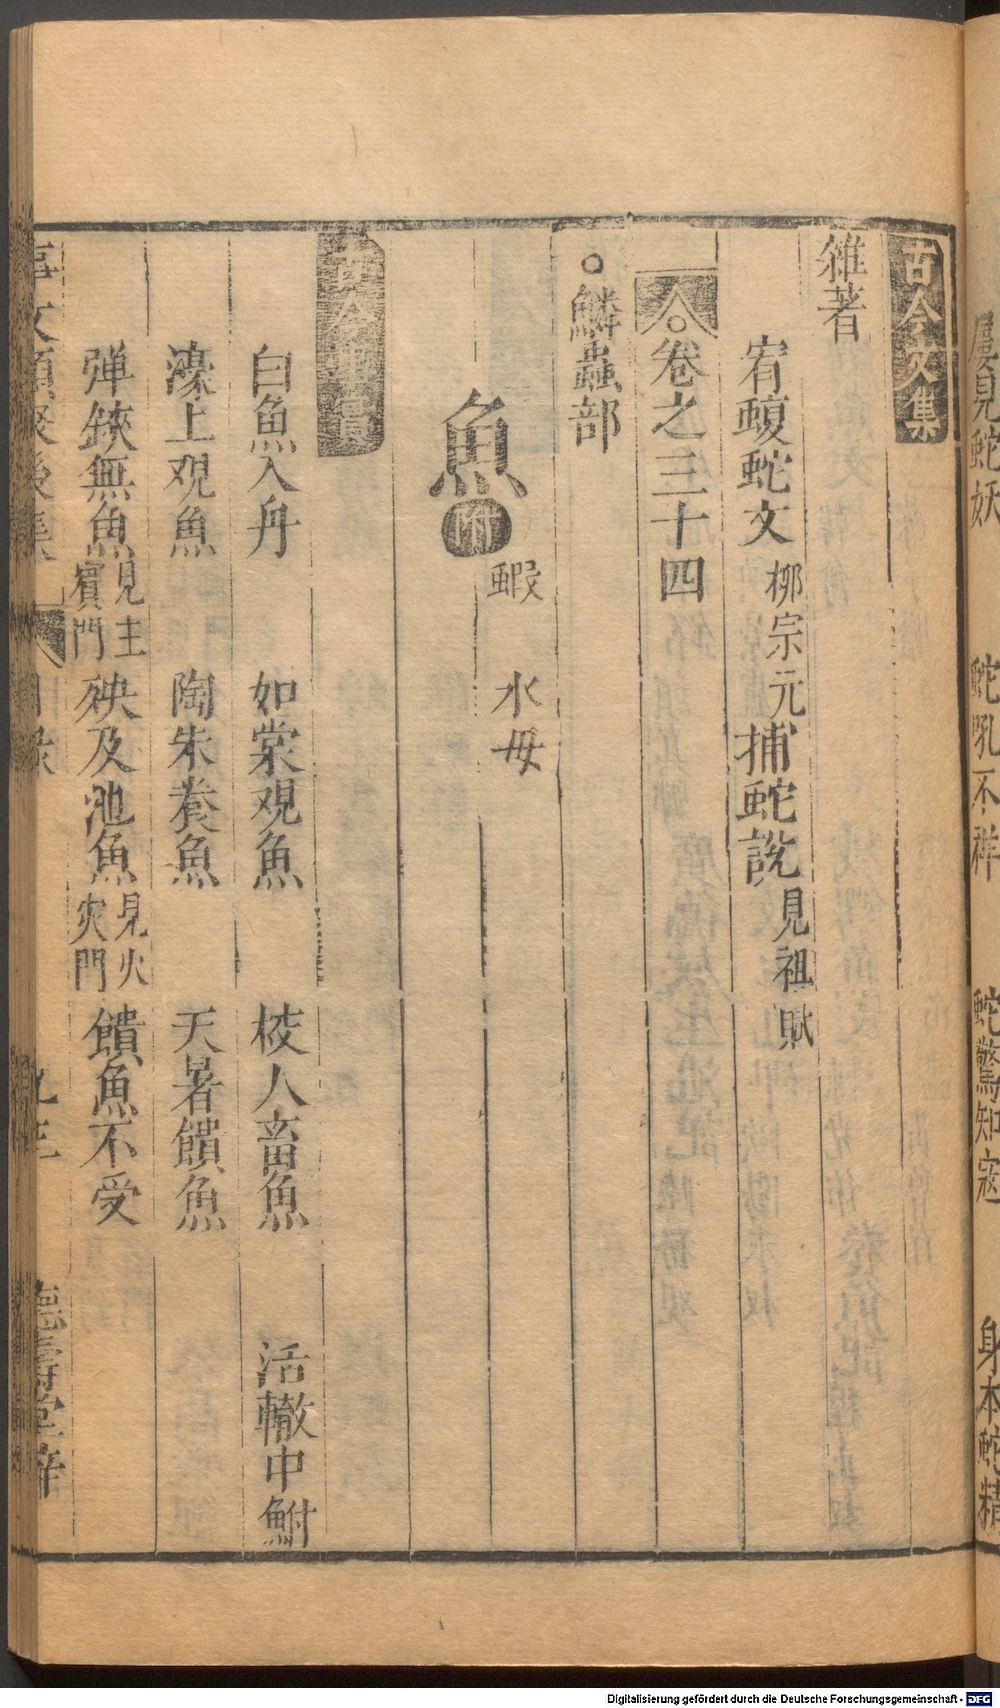 屢見蛇妖　蛇吼不祥　蛇驚知寇　身本蛇精
古今文集
雜著
宥蝮蛇文柳宗元　捕蛇說見祖賦
卷之三十四
鱗蟲部
蝦　水母
魚附
古今事實
白魚入舟　如棠观魚　校人畜魚　活轍中鮒
濠上观魚　陶朱養魚　天暑饋魚
弹鋏無魚見主賓門　殃及池魚見火灾門　饋魚不受
事文類聚後集　目録　德壽堂梓
Digitalisierung gefördert durch die Deutsche Forschungsgemeinschaft - DFG